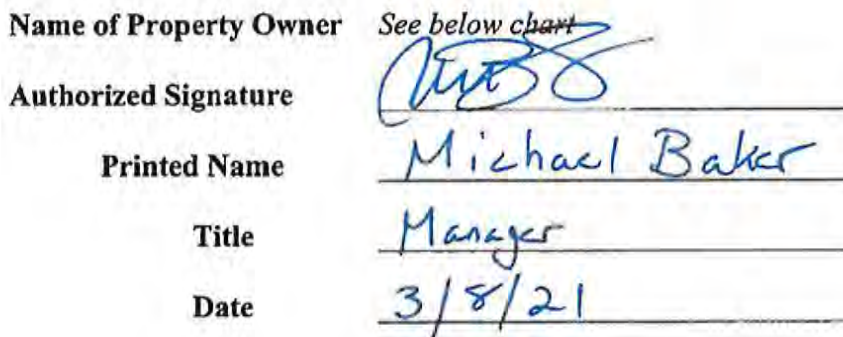 Name of Property Owner See below chart
Authorized Signature
Printed Name Michael Baker
Title Manager
Date 3/8/21